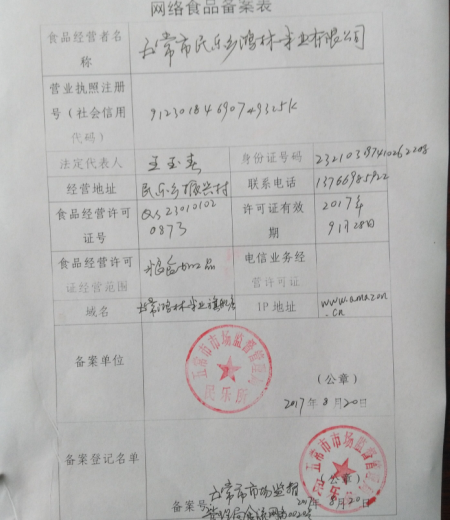 网络食品备案表
食品经营者名称 五常市民乐乡鸿林米业有限公司
营业执照注册号（社会信用代码） 91230184690749325K
法定代表人 王玉春 身份证号码
经营地址 民乐乡振兴村 联系电话 13766985922
食品经营许可证号 QS23010102 0873 许可证有效期 2017年9月28日
食品经营许可证经营范围 电信业务经营许可证
域名 五常鸿林米业旗舰店 IP地址 www.amazon.cn
备案单位
五常市市场监督管理局
民乐所
（公章）
2017年8月20日
备案登记名单
五常市市场监督管理局
民乐所
（公章）
2017年8月20日
备案号 五常市市场监督